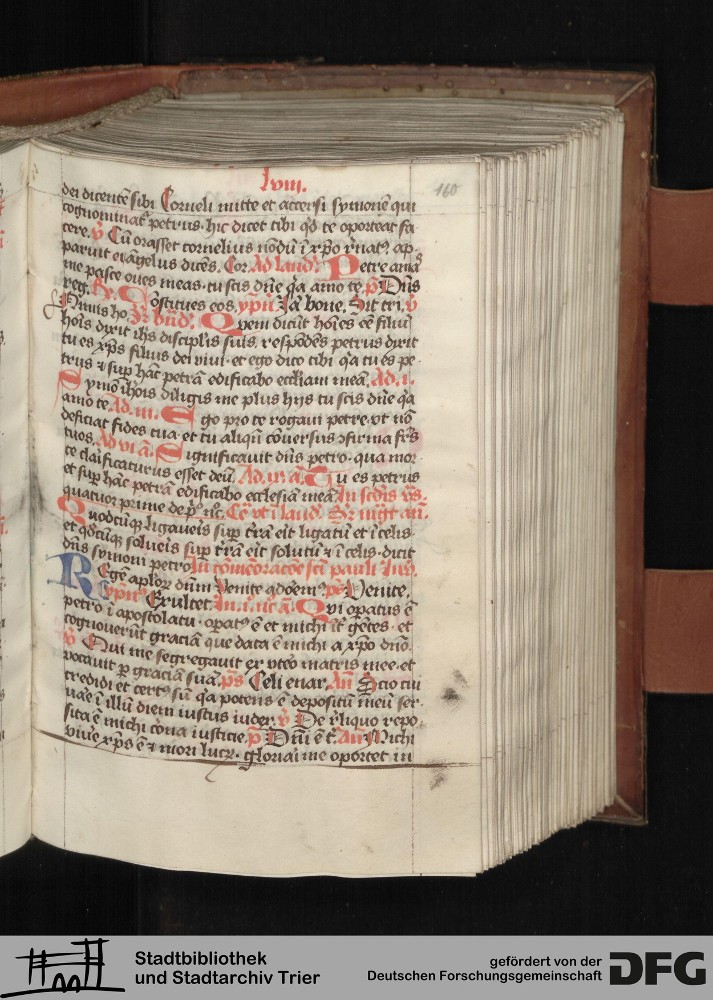 lviii.
160
dei dicentē sibi Corneli mitte et accersi symonē qui
cognominat᷑ petrus. hic dicet tibi qd̄ te oporteat fa
cere. v̄ Cū orasset cornelius nōdū ī xp̄o r̄nat᷒ ap
paruit ei āgelus dicēs. Cor. Ad laud᷒ Petre amas
me pasce oues meas. tu scis dn̄e qa amo te. p̄ Dn̄s
reg. Rx. Cōstitues eos. ypn᷒ Ia bone. Sit tri. v̄
Annūis ho. Sr̄ bn̄d᷒. Quem dicūt hoīes eē filiū
hoīs dixit ihs discipl̄is suis. respōdēs petrus dixit
tu es xp̄s filius dei viui. et ego dico tibi qa tu es pe
trus ⁊ sup hāc petrā edificabo eccl̄iam meā. Ad. i.
Symō iohōis diligis me plus hijs tu scis dn̄e qa
amo te. Ad. iii. Ego pro te rogaui petre. vt nō
deficiat fides tua. et tu aliqn̄ cōuersus ꝯfirma fr̄s
tuos. Ad vi ā. Significauit dn̄s petro. qua mor
te clarificaturus esset deū. Ad. ix. ā. Tu es petrus
et sup hāc petrā edificabo ecclesiā meā. In scd̄is vs̄.
quatuor prime de p̄᷒ nc̄. Cē vt ī laud᷒. Sr̄ mg̅t an̄.
Quodcūq ligaueis sup trā eit ligatū et ī celis.
et qd̄cūq solueis sup trā eit solutū ⁊ ī celis. dicit
dn̄s symoni petro. In cōmēoracōe scī pauli Inv̄.
Regē aplor᷒ dn̄m Venite adoem᷒. ps̄ Venite.
ypn᷒ Exultet. In. i. nc̄. ā. Qui opatus ē
petro ī apostolatu. opat᷒ ē et michi īt̄ gētes. et
cognouer̄ūt graciā que data ē michi a xp̄o dn̄o.
ps̄ Qui me segregauit ex vtēo matris mee. et
vocauit p graciā suā. ps̄ Celi enar. An̄ Scio cui
credidi et cert᷒ sū qa potens ē depositū meū ser
uāe ī illū diem iustus iudex. v̄ De r̄liquo repo
sita ē michi cōna iusticie. p̄ Dn̄i ē t̄. An̄ Michi
viuē xp̄s ē ⁊ mori lucr᷒. gloriāi me oportet in
Stadtbibliothek
und Stadtarchiv Trier
gefördert von der
Deutschen Forschungsgemeinschaft
DFG